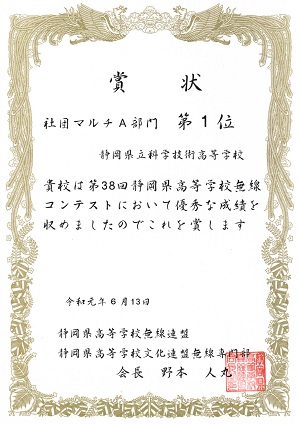 賞状
社団マルチA部門 第1位
静岡県立科学技術高等学校
貴校は第38回静岡県高等学校無線
コンテストにおいて優秀な成績を
収めましたのでこれを賞します
令和元年6月13日
静岡県高等学校無線連盟
静岡県高等学校文化連盟無線専門部
会長 野本 人丸